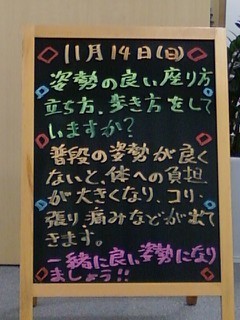 11月14日(日)
姿勢の良い座り方
立ち方、歩き方をして
いますか?
普段の姿勢が良く
ないと、体への負担
が大きくなり、コリ
張り痛みなどが出て
きます。
一緒に良い姿勢になり
ましょう!!